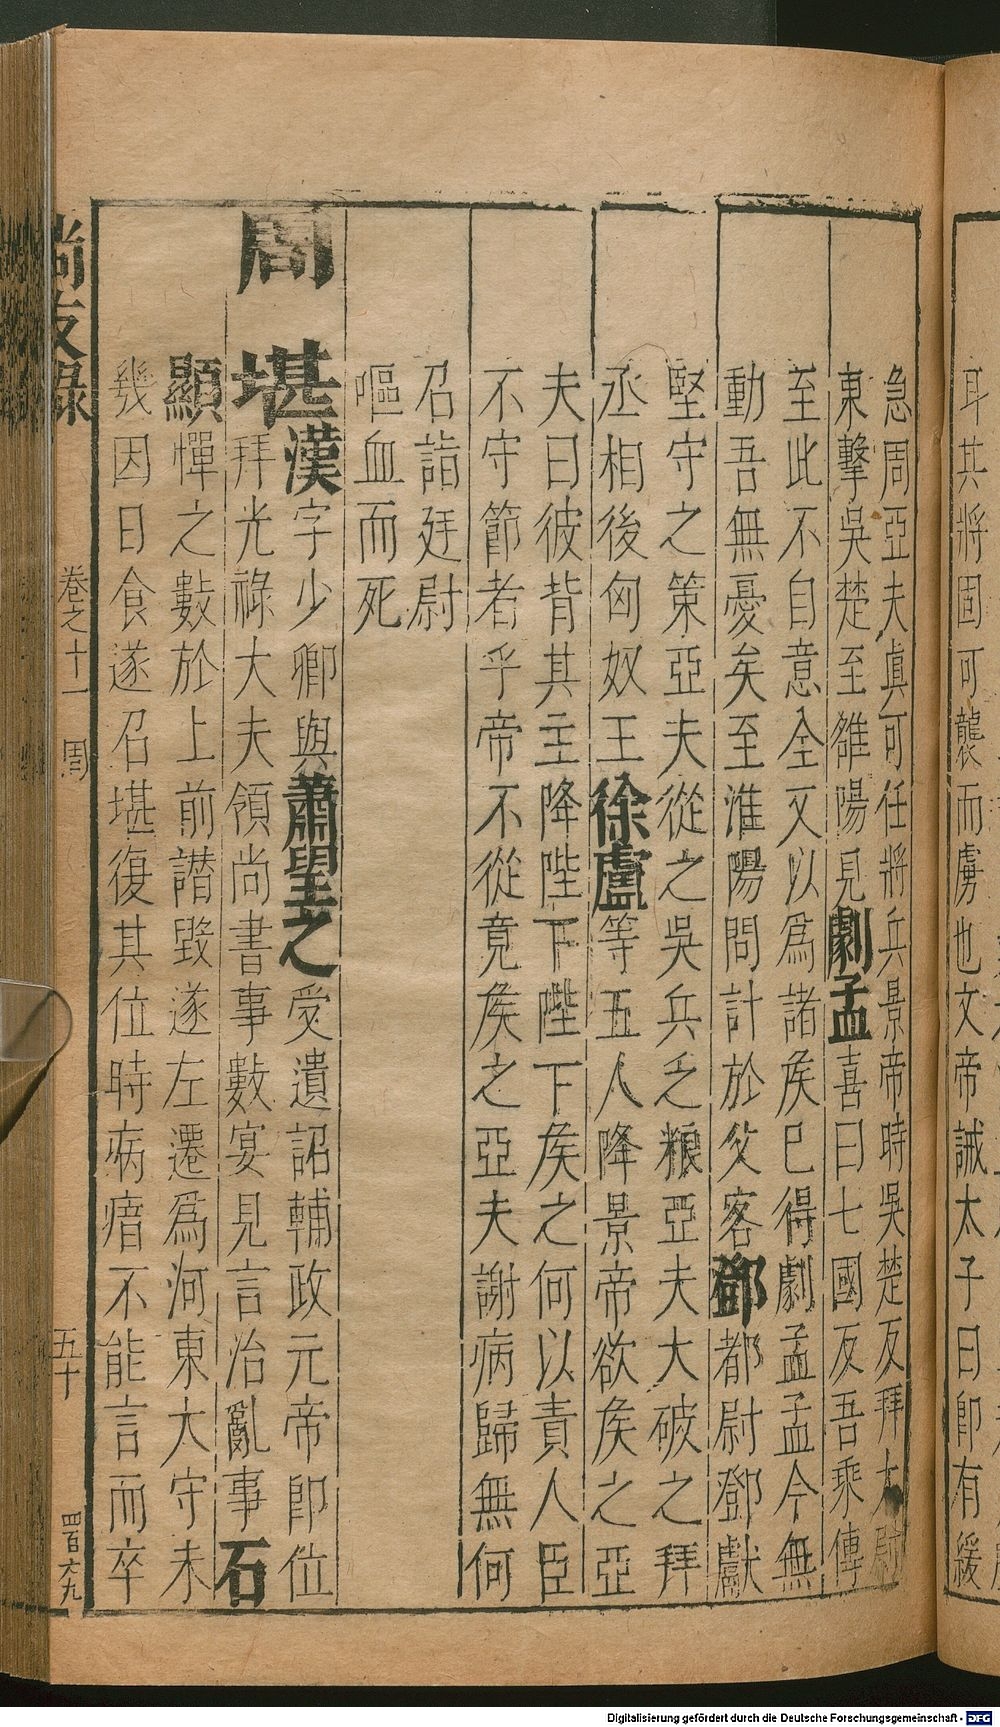 耳其將固可襲而虜也文帝誡太子曰卽有緩
急周亞夫眞可任將兵景帝時吳楚反拜太尉
東擊吳楚至雒陽見劇孟喜曰七國反吾乘傳
至此不自意全又以爲諸矦已得劇孟孟今無
動吾無憂矣至淮陽問計於父客鄧都尉鄧獻
堅守之策亞夫從之吳兵乏粮亞夫大破之拜
丞相後匈奴王徐盧等五人降景帝欲矦之亞
夫曰彼背其主降陛下陛下矦之何以責人臣
不守節者乎帝不從竟矦之亞夫謝病歸無何
召詣廷尉
嘔血而死
周堪漢字少卿與蕭望之受遺詔輔政元帝卽位
拜光祿大夫領尚書事數宴見言治亂事石
顯憚之數於上前譖毀遂左遷爲河東太守未
幾因日食遂召堪復其位時病瘖不能言而卒
尚友錄 卷之十一 周 五十 四百六九
Digitalisierung gefördert durch die Deutsche Forschungsgemeinschaft - DFG